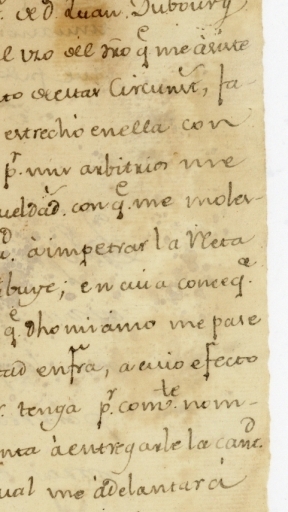 de d. Juan Dubourg
el uzo del dro q.e me asiste
to de estar Circunst.,
estrecho en ella con
p.r mir arbitrios me
ueldad. con q.e me moles-
à impetrar la Rl eta
buye; en cuia conceq.a
q.e dho mi amo me pase
tad enfra, a cuio efecto
tenga p.r comb.te nom-
nta à entregarle la cant.d
ual me àdelantarà